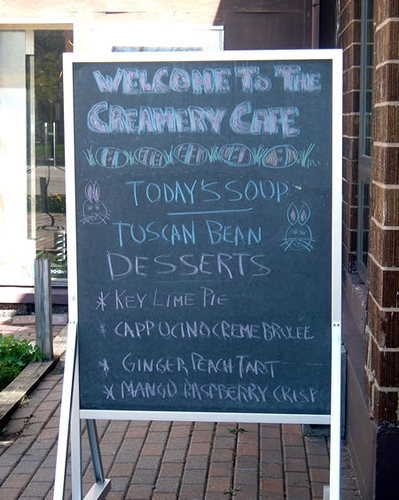 WELCOME TO THE
CREAMERY CAFE
TODAY'S SOUP
TUSCAN BEAN
DESSERTS
* KEY LIME PIE
* CAPPUCINO CREME BRULEE
* GINGER PEACH TART
* MANGO RASPBERRY CRISP